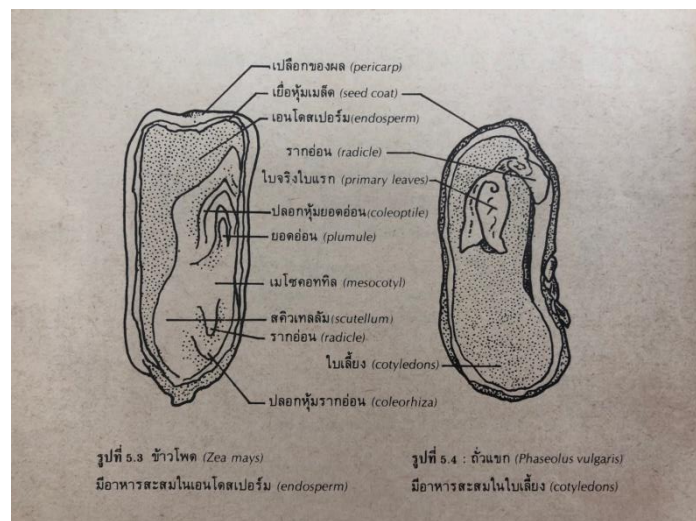 เปลือกของผล (pericarp)
เยื่อหุ้มเมล็ด (seed coat)
เอนโดสเปอร์ม(endosperm)
รากอ่อน (radicle)
ใบจริงใบแรก (primary leaves)
ปลอกหุ้มยอดอ่อน(coleoptile)
ยอดอ่อน (plumule)
เมโซคอททิล (mesocotyl)
สคิวเทลลัม(scutellum)
รากอ่อน (radicle)
ใบเลี้ยง (cotyledons)
ปลอกหุ้มรากอ่อน (coleorhiza)
รูปที่ 5.3 ข้าวโพด (Zea mays)
มีอาหารสะสมในเอนโดสเปอร์ม (endosperm)
รูปที่ 5.4 : ถั่วแขก (Phaseolus vulgaris)
มีอาหารสะสมในใบเลี้ยง (cotyledons)